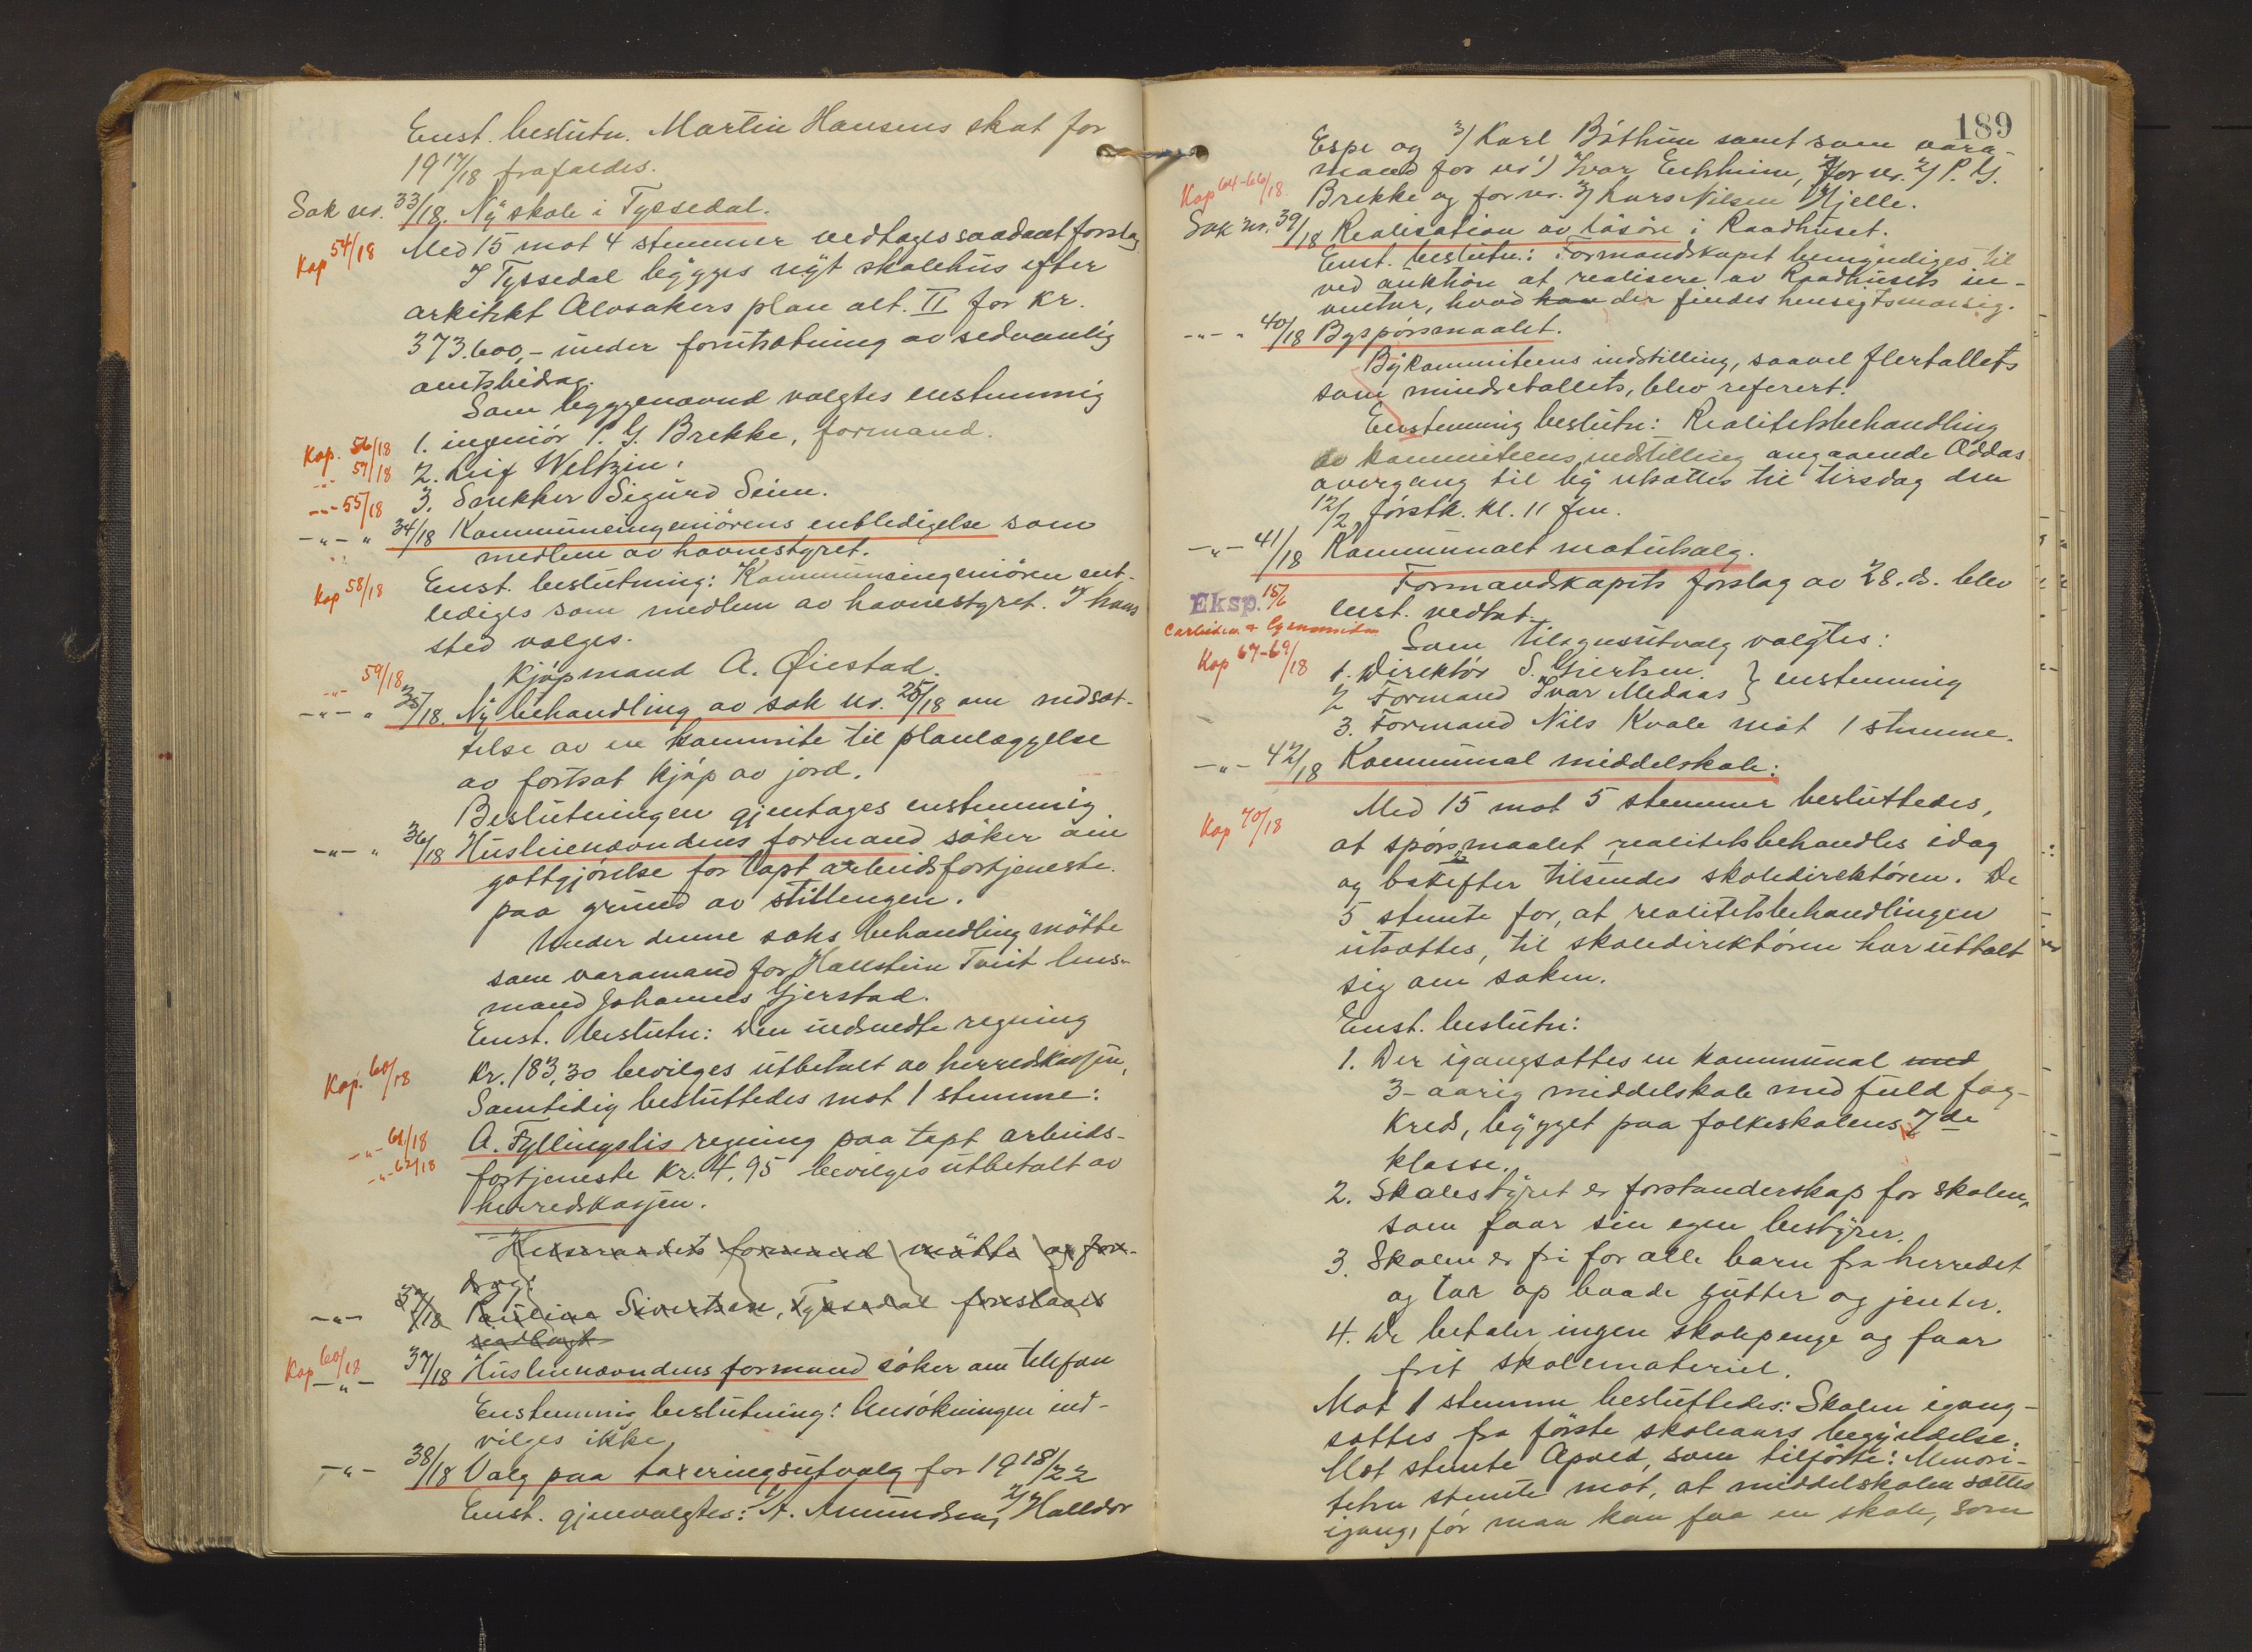 Enst. beslutn. Martin Hansens skat for
1917/18 frafaldes.
Sak nr. 33/18. Ny skole i Tyssedal.
Kop 54/18 Med 15 mot 4 stemmer vedtages saadant forslag
I Tyssedal bygges nyt skolehus efter
arkitekt Alvsakers plan alt. II for kr.
373.600,- under forutsætning av sedvanlig
amtsbidrag.
Som byggenævnd valgtes enstemmig
Kop. 56/18 1. ingeniør P. G. Brekke, formand.
-"- 57/18 2. Leif Weltzin.
-"- 55/18 3. Snekker Sigurd Seim.
-"- " 34/18 Kommuneingeniørens entledigelse som
medlem av havnestyret.
Kop 58/18 Enst. beslutning: Kommuneingeniøren ent-
lediges som medlem av havnestyret. I hans
sted vælges.
-"- 59/18 Kjøpmand A. Øiestad.
-"- " 35/18. Ny behandling av sak nr. 25/18 om nedsæt-
telse av en kommite til planlæggelse
av fortsat kjøp av jord.
Beslutningen gjentages enstemmig
-"- " 36/18 Husleienævndens formand søker om
gottgjørelse for tapt arbeidsfortjeneste
paa grund av stillingen.
Under denne saks behandling møtte
som varamand for Hallstein Tveit lens-
mand Johannes Gjerstad.
Enst. beslutn: Den indsendte regning
Kop. 60/18 kr. 183,30 bevilges utbetalt av herredskassen,
Samtidig besluttedes mot 1 stemme:
-"- 61/18 A. Fyllingslis regning paa tapt arbeids-
-"- 62/18 fortjeneste kr. 4,95 bevilges utbetalt av
herredskassen.
Husleienævndens formand møtte og fore-
drog:
-"- 37/18 Pauline Sivertsen, Tyssedal forslaaes
Kop 60/18
-"- 37/18 Husleienævndens formand søker om telefon
Enstemmig beslutning: Ansøkningen ind-
vilges ikke.
-"- 38/18 Valg paa taxeringsutvalg for 1918/22
Enst. gjenvalgtes: 1/ A. Amundsen, 2/ Halldor
189
Espe og 3/ Karl Bøthun samt som vara-
mand for nr 1) Ivar Eitrheim, for nr. 2/ P. G.
Kop 64-66/18 Brekke og for nr. 3/ Lars Nilsen Hjelle.
Sak nr. 39/18 Realisation av løsøre i Raadhuset.
Enst. beslutn: Formandskapet bemyndiges til
ved auktion at realisere av Raadhusets in-
ventar, hvad han der findes hensigtsmæssig.
-"- " 40/18 Byspørsmaalet.
Bykommiteens indstilling, saavel flertallets
som mindretallets, blev referert.
Enstemmig beslutn: Realitetsbehandling
av kommiteens indstilling angaaende Oddas
overgang til by utsættes til tirsdag den
12/2 førstk. kl. 11 fm.
-"- 41/18 Kommunalt matutsalg.
Formandskapets forslag av 28. ds. blev
Eksp. 15/6 enst. vedtat.
Som tilsynsutvalg valgtes:
Kop 67-69/18 1. Direktør S. Giertsen. } enstemmig
2 Formand Ivar Medaas }
3. Formand Nils Kvale mot 1 stemme.
-"- 42/18 Kommunal middelskole:
Kop 70/18 Med 15 mot 5 stemmer besluttedes,
at spørsmaalet realitetsbehandles idag
og bakefter tilsendes skoledirektøren. De
5 stemte for, at realitetsbehandlingen
utsættes, til skoledirektøren har uttalt
sig om saken.
Enst. beslutn:
1. Der igangsættes en kommunal med
3-aarig middelskole med fuld fag-
kreds, bygget paa folkeskolens 7de
klasse.
2. Skolestyret er forstanderskap for skolen,
som faar sin egen bestyrer.
3. Skolen er fri for alle barn fra herredet
og tar op baade gutter og jenter.
4. De betaler ingen skolepenge og faar
frit skolemateriel.
Mot 1 stemme besluttedes: Skolen igang-
sættes fra første skoleaars begyndelse.
Mot stemte Apold, som tilførte: Minori-
teten stemte mot, at middelskolen sættes
igang, før man kan faa en skole, som